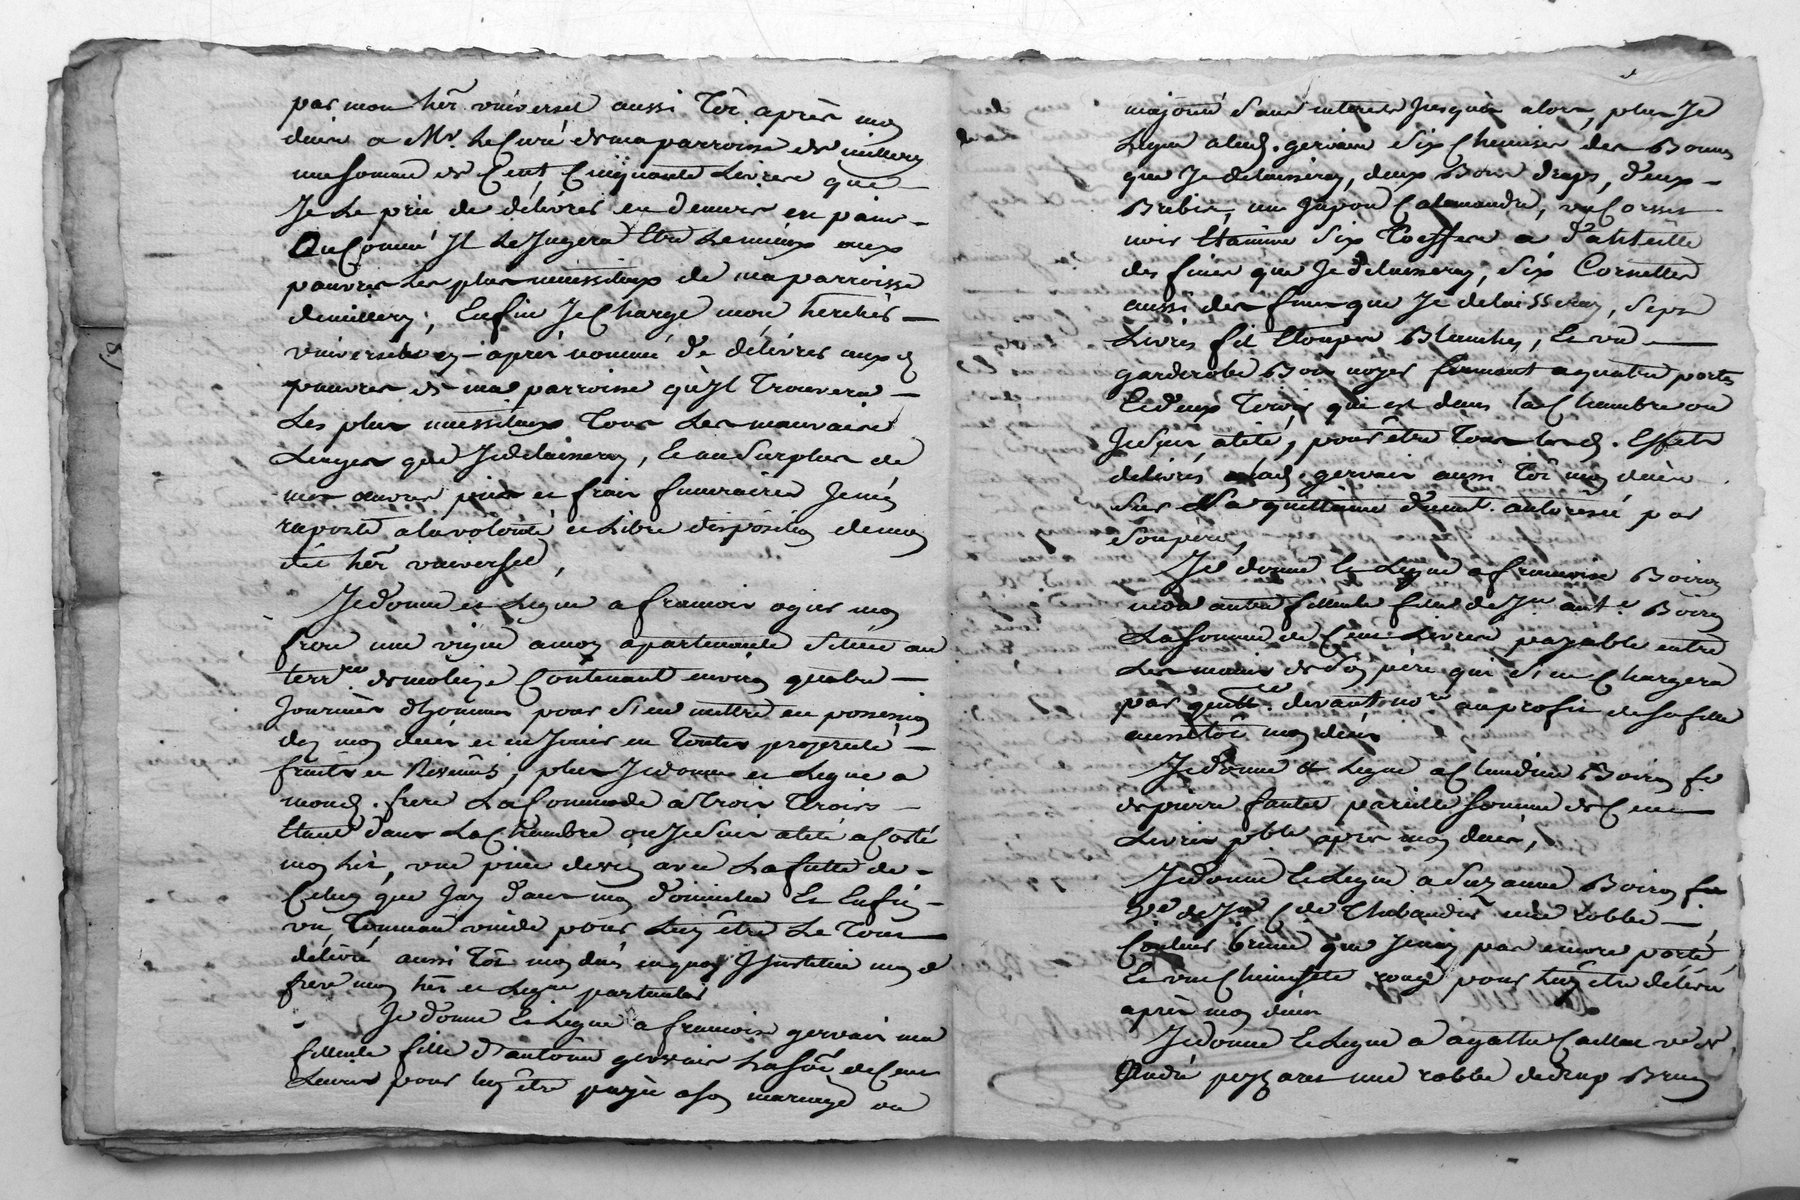 par mon hēr universel aussi Tôt après mon
décès a Mr. Le Curé de ma parroisse de millery
une somme de Cent Cinquante Livres que
Je Le prie de délivrer en denures en pain
Ou Comme Jl Le Jugera Etre Le mieux aux
pauvres les plus nécessiteux de ma parroisse
de millery; Enfin Je Charge mon heretier
universel cy-après nommé de délivrer aux d
pauvres de ma parroisse qu'Jl Trouvera
Les plus nécessiteux Tous Les mauvais
Linges que Jedelaisseray, Et au Surplus de
mes œuvres pies et frais funeraires Je m'en
raporte a la volonté et Libre disposition de mon
dit hēr universel,
Je donne et Legue a francois ogier mon
frere une vigne a moy apartenante Scituée au
terr.re de moleize Contenant environ quatre
Journées d'hommes pour S'en mettre en possession
dez mon décès et en Jouir en Toutes proprieté
fruits et Revenus, plus Je donne et Legue a
mond. frere La Commode a trois Tiroirs
Etant dans La Chambre ou Je Suis alité a Costé
mon Lit, une piece de vin avec La futte de
Celuy que Jay dans mon domicile Et Enfin
un Tonneau vuide pour Luy être Le Tout
délivré aussi Tôt mon décès en quoy J'institue mon d
frere mon hēr et Legre particulier
Je donne Et Legue a francoise gervais ma
filleule fille d'antoine gervais La Sōe de Cent
Livres pour luy être payée a son mariage ou
majorité Sans interets Jusqu'a alors, plus Je
Legue a lad. gervais Six Chemises des Bonnes
que Je delaisseray, deux Bons draps, deux
Brebis, un Jupon Calamandre, un Corset
noir Etamine Six Coeffes a dantelle
des fines que Je delaisseray, Six Cornettes
aussi des fines que Je delaisseray, Sept
Livres fil Etoupes Blanches, Et un
garderobe Bois noyer fermant a quatre portes
Et deux Tiroirs qui est dans la Chambre ou
Je Suis alité, pour être Tous les d. Effets
delivrés a lad. gervais aussi Tôt mon décès
Sur Sa quittance duemt. autorisée par
Son père,
Je donne Et Legue a francoise Boiron
mon autre filleule fille de Jn ant.e Boiron
La Somme de Cent Livres payable entre
Les mains de Son père qui S'en Chargera
par quitt.ce devant no.re au profit de Sa fille
aussitôt mon décès
Je donne et Legue a Claudine Boiron fe
de pierre fantet pareille Somme de Cent
Livres pble après mon décès,
Je donne Et Legue a Suzanne Boiron
de Jn C de Thibaudier une robbe
Couleur brune que Je n'ay pas encore porté
Et une Chemisete rouge pour Luy être délivré
après mon décès
Je donne Et Legue a agathe Caillat ve de
André une robbe de drap Brun